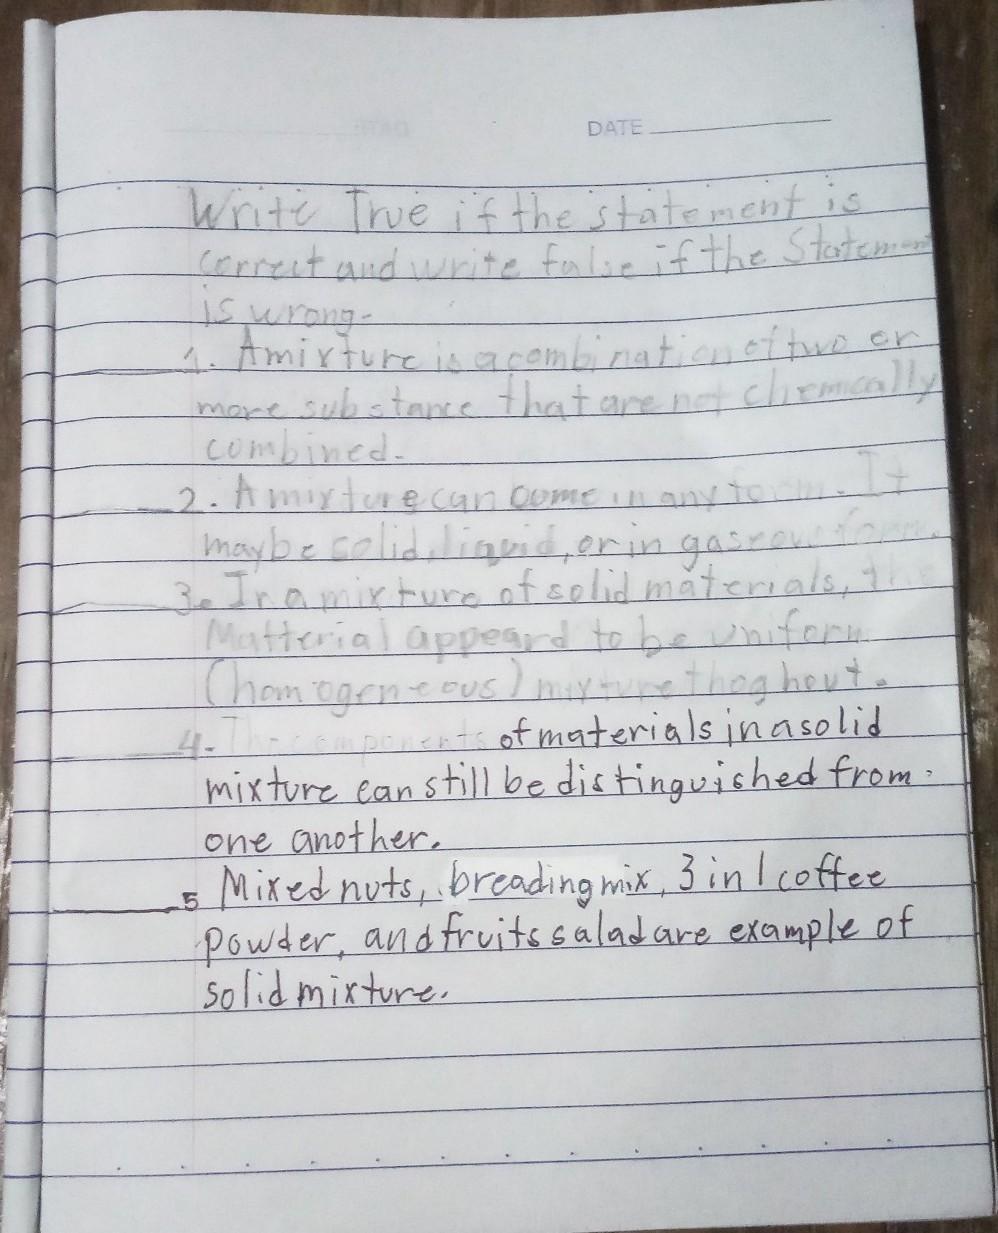 DATE
Write True if the statement is
correct and write false if the Statement
is wrong-
1. A mixture is a combination of two or
more substance that are not chemically
combined-
2. A mixture can come in any form. It
maybe solid, liquid, or in gaseous form.
3. In a mixture of solid materials, the
Matterial appeard to be uniform
(homogeneous) mixture thoghout.
4- The components of materials in a solid
mixture can still be distinguished from
one another.
5 Mixed nuts, breading mix, 3 in 1 coffee
powder, and fruits salad are example of
solid mixture.